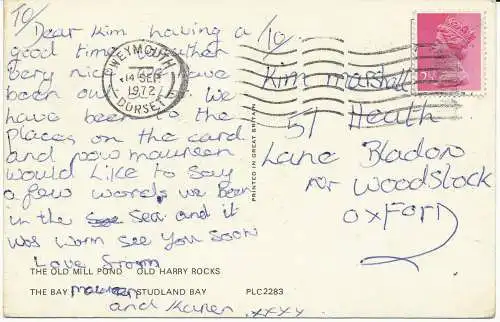 To/
Dear Kim having a
good time weather
very nice
been out we
have been to the
places on the card
and now maureen
would Like to Say
a few words we Been
in the Sea and it
was worm see you Soon
Love from
maureen
and Karen xxxx
To/
Kim marshall
51 Heath
Lane Bladon
nr Woodstock
OXFORD
WEYMOUTH
14 SEP
1972
DORSET
2½P
PRINTED IN GREAT BRITAIN
THE OLD MILL POND OLD HARRY ROCKS
THE BAY STUDLAND BAY PLC2283